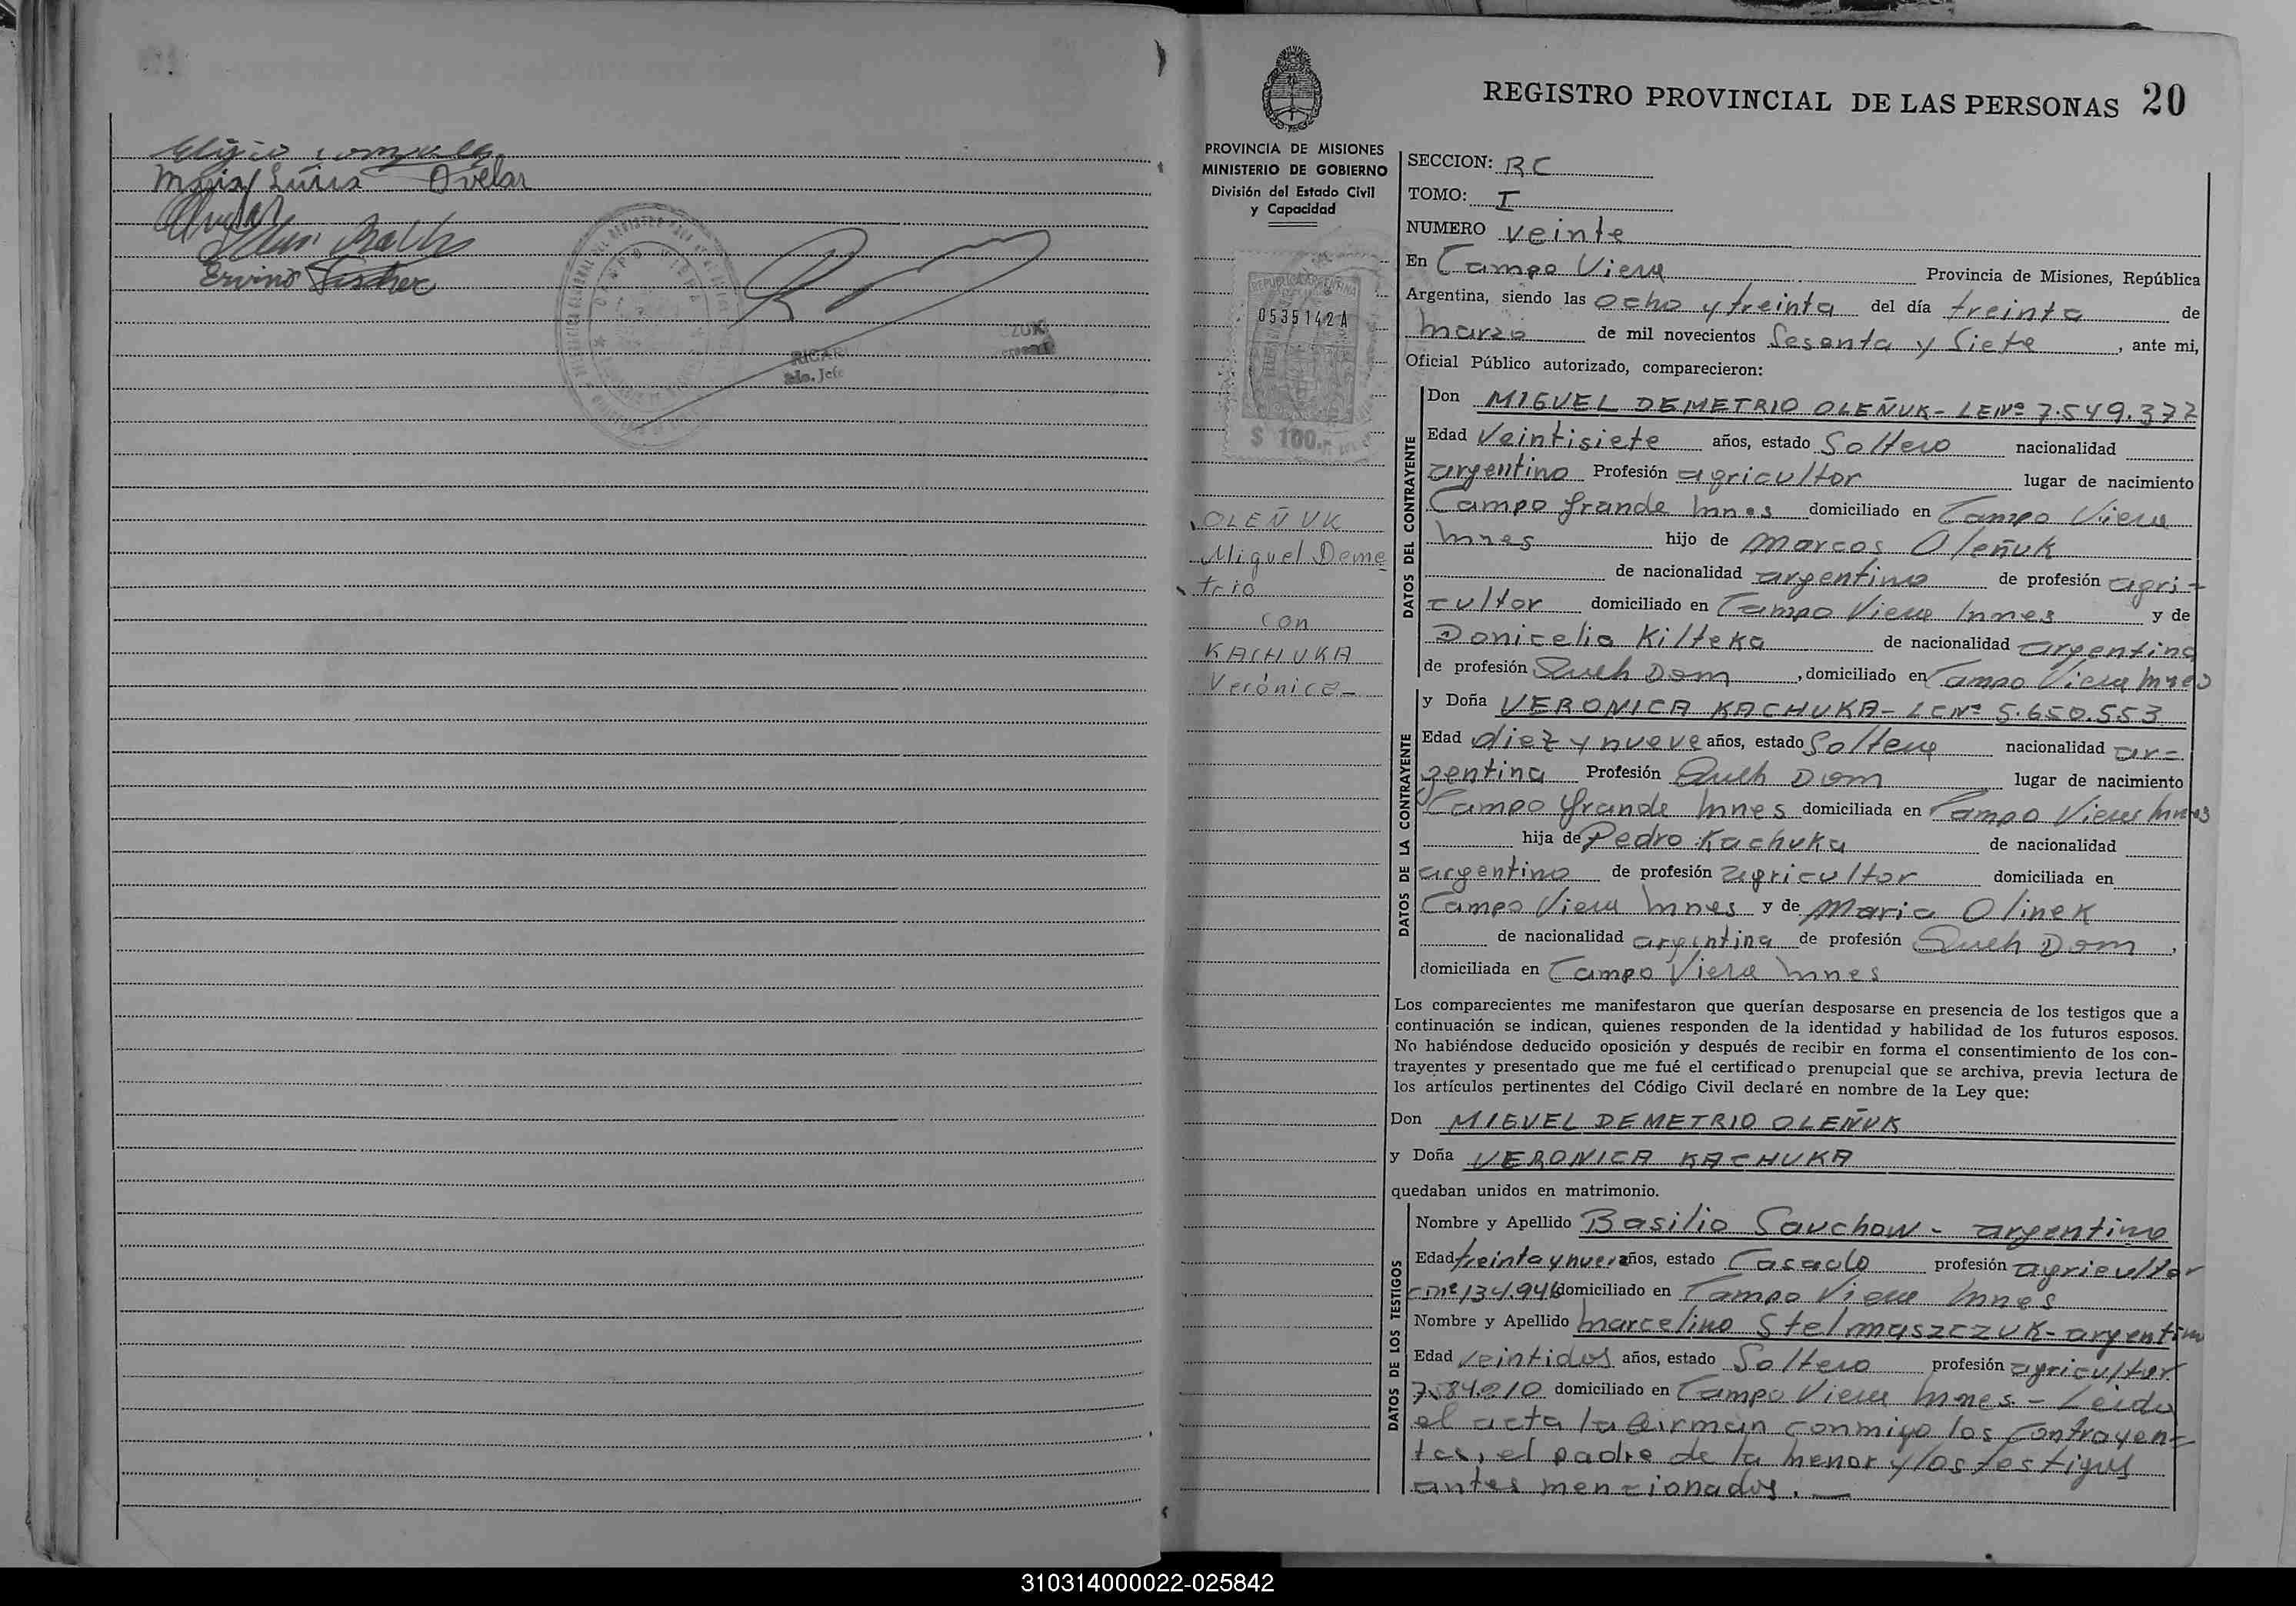 Eligio
Maria Luisa Ovelar
Ervino Fischer
RICAR
REGISTRO PROVINCIAL DE LAS PERSONAS 20
PROVINCIA DE MISIONES
MINISTERIO DE GOBIERNO
División del Estado Civil
y Capacidad
REPUBLICA ARGENTINA
0535142A
$ 100.-
OLEÑUK
Miguel Deme
trio
con
KACHUKA
Verónica-
SECCION: RC
TOMO: I
NUMERO veinte
En Campo Viera Provincia de Misiones, República
Argentina, siendo las ocho y treinta del día treinta de
marzo de mil novecientos Sesenta y Siete, ante mi,
Oficial Público autorizado, comparecieron:
DATOS DEL CONTRAYENTE
Don MIGUEL DEMETRIO OLEÑUK- LENº 7.549.372
Edad Veintisiete años, estado Soltero nacionalidad
argentino Profesión agricultor lugar de nacimiento
Campo Grande Mnes domiciliado en Campo Viera
Mnes hijo de Marcos Oleñuk
de nacionalidad argentino de profesión agri-
cultor domiciliado en Campo Viera Mnes y de
Donicelia Kilteka de nacionalidad argentina
de profesión Queh Dom, domiciliado en Campo Viera Mnes
DATOS DE LA CONTRAYENTE
y Doña VERONICA KACHUKA- LCNº 5.650.553
Edad diez y nueve años, estado Soltera nacionalidad ar=
gentina Profesión Queh Dom lugar de nacimiento
Campo Grande Mnes domiciliada en Campo Viera Mnes
hija de Pedro Kachuka de nacionalidad
argentino de profesión agricultor domiciliada en
Campo Viera Mnes y de Maria Olinek
de nacionalidad argentina de profesión Queh Dom,
domiciliada en Campo Viera Mnes
Los comparecientes me manifestaron que querían desposarse en presencia de los testigos que a
continuación se indican, quienes responden de la identidad y habilidad de los futuros esposos.
No habiéndose deducido oposición y después de recibir en forma el consentimiento de los con-
trayentes y presentado que me fué el certificado prenupcial que se archiva, previa lectura de
los artículos pertinentes del Código Civil declaré en nombre de la Ley que:
Don MIGUEL DEMETRIO OLEÑUK
y Doña VERONICA KACHUKA
quedaban unidos en matrimonio.
DATOS DE LOS TESTIGOS
Nombre y Apellido Basilio Sauchow - argentino
Edad treinta y nueve años, estado Casado profesión agricultor
CINº134.946 domiciliado en Campo Viera Mnes
Nombre y Apellido Marcelino Stelmaszczuk- argentino
Edad veintidos años, estado Soltero profesión agricultor
7.584.210 domiciliado en Campo Viera Mnes - Leida
el acta la firman conmigo los contrayen=
tes, el padre de la menor y los testigos
antes mencionados. —
310314000022-025842